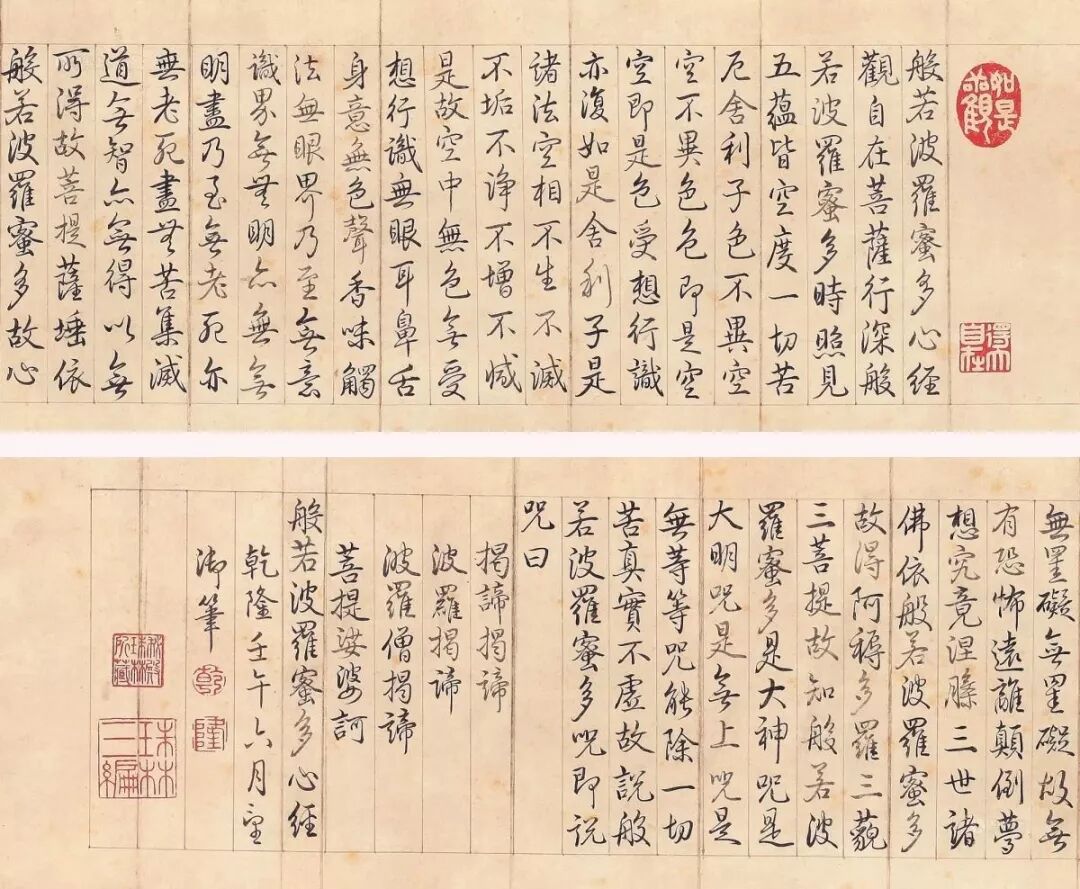 得大自在
般若波羅蜜多心經
觀自在菩薩行深般
若波羅蜜多時照見
五蘊皆空度一切苦
厄舍利子色不異空
空不異色色即是空
空即是色受想行識
亦復如是舍利子是
諸法空相不生不滅
不垢不淨不增不減
是故空中無色無受
想行識無眼耳鼻舌
身意無色聲香味觸
法無眼界乃至無意
識界無無明亦無無
明盡乃至無老死亦
無老死盡無苦集滅
道無智亦無得以無
所得故菩提薩埵依
般若波羅蜜多故心
無罣礙無罣礙故無
有恐怖遠離顛倒夢
想究竟涅槃三世諸
佛依般若波羅蜜多
故得阿耨多羅三藐
三菩提故知般若波
羅蜜多是大神咒是
大明咒是無上咒是
無等等咒能除一切
苦真實不虛故說般
若波羅蜜多咒即說
咒曰
揭諦揭諦
波羅揭諦
波羅僧揭諦
菩提娑婆訶
般若波羅蜜多心經
乾隆壬午六月望
御筆
乾
隆
秘殿珠林所藏
珠林三編